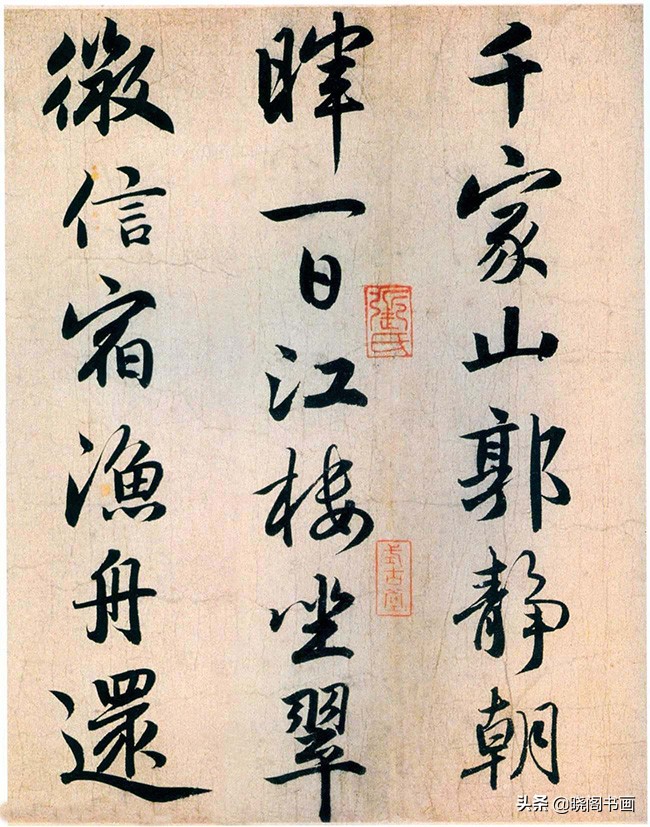 千家山郭靜朝
暉一日江樓坐翠
微信宿漁舟還
式古堂
头条 @晓阁书画